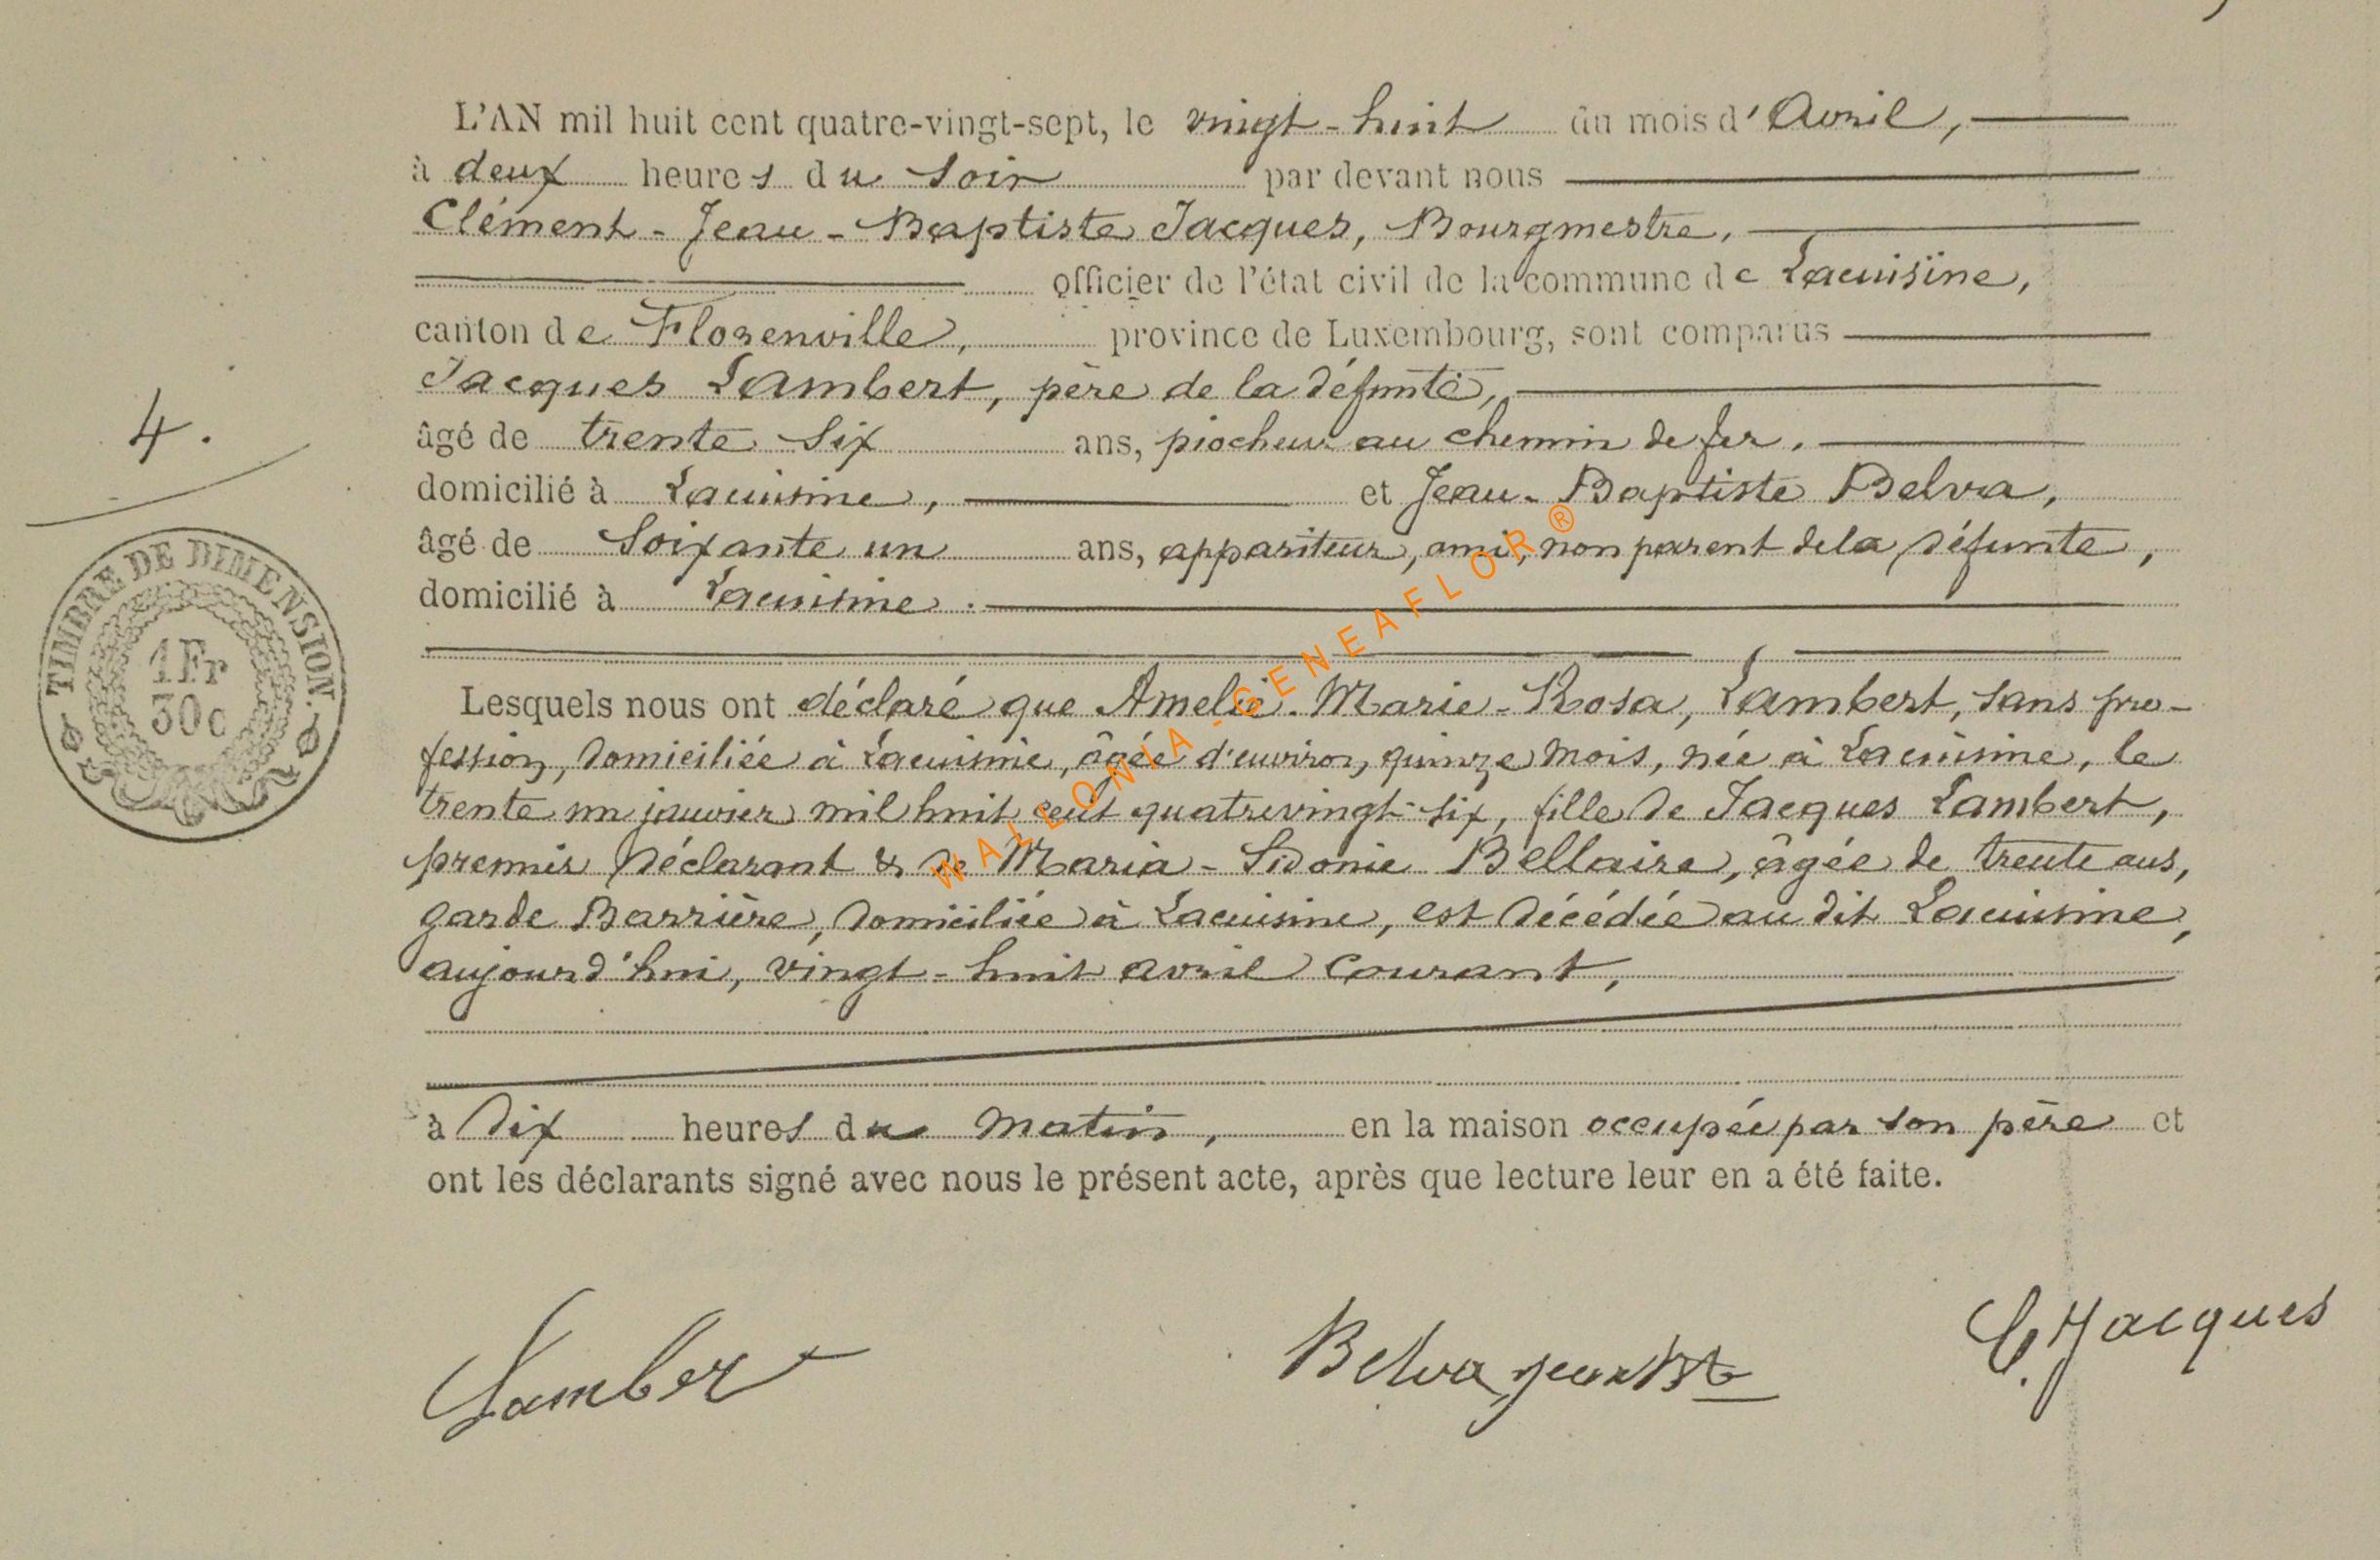 L'AN mil huit cent quatre-vingt-sept, le vingt-huit du mois d'Avril,
à deux heures du soir par devant nous
Clément-Jean-Baptiste Jacques, Bourgmestre,
officier de l'état civil de la commune de Lacuisine,
canton de Florenville, province de Luxembourg, sont comparus
Jacques Lambert, père de la défunte,
âgé de trente six ans, piocheur au chemin de fer,
4.
domicilié à Lacuisine, et Jean-Baptiste Belva,
âgé de soixante un ans, appariteur, ami, non parent de la défunte,
domicilié à Lacuisine.
TIMBRE DE DIMENSION.
1Fr
30c
Lesquels nous ont déclaré que Amelie-Marie-Rosa, Lambert, sans pro-
fession, domiciliée à Lacuisine, âgée d'environ quinze mois, née à Lacuisine, le
trente un janvier mil huit cent quatrevingt-six, fille de Jacques Lambert,
premier déclarant & de Maria-Sidonie Bellaire, âgée de trente ans,
garde Barrière, domiciliée à Lacuisine, est décédée au dit Lacuisine,
aujourd'hui, vingt-huit avril courant,
à dix heures du matin, en la maison occupée par son père et
ont les déclarants signé avec nous le présent acte, après que lecture leur en a été faite.
Lambert
Belva jean Bte
C. Jacques
WALLONIA-GENEAFLOR®